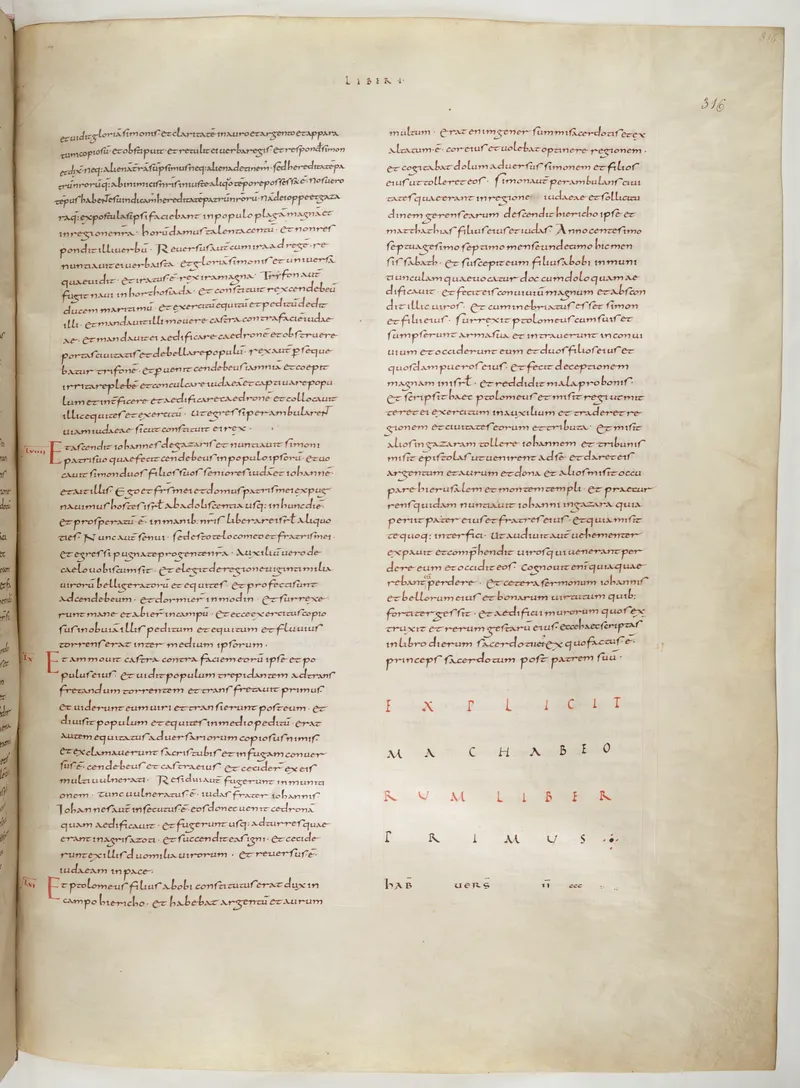 LIBER ·
316
et uidit gloriā simonis et claritatē in auro et argento et appara
tum copiosū et obstipuit et retulit ei uerba regis et respond simon
et dix̄ neq; alienā t̄rā sūpsimus neq; aliena detinem̄ · sed hereditatē pa
sēpus habentes
raq; expostulas ipsi faciebant in populo plagā magnā et
in regione nr̄a · horū damus talenta centū · et non res
pondit illi uerbū · Reuersus aut̄ cum ira ad regē · re
nuntiauit ei uerba ista · et gloriā simonis et uniuersa
quae uidit · et iratus ē rex ira magna · Tryfon aut̄
fugit naui in horthosiada · et constituit rex cendebeū
ducem maritimū · et exercitū equitū et peditū dedit
illi · et mandauit illi mouere castra contra faciē iudae
ae · et mandauit ei aedificare caedronē et obstruere
portas ciuitatis et debellare populū · rex aut̄ p̄seque
batur trifonē · et puenit cendebeus iamnia et coepit
irritare plebē et conculcare iudaeā et captiuare popu
lum et int̄ficere et aedificare caedronē et collocauit
illic equites et exercitū · ut egressi perambularent
uiam iudaeae sicut constituit ei rex ·
Et ascendit iohannes de gazaris et nuntiauit simoni
patri suo quae fecit cendebeus in populo ipsorū · et uo
cauit simon duos filios suos seniores iudā et iohannē
et ait illis · Ego et fr̄s mei et domus patris mei expug
nauimus hostes isrl̄ ab adolescentia usq; in hunc diē
et prosperatū ē in manib; nr̄is liberare isrl̄ aliquo
tiēs · Nunc aut̄ senui · sed estote loco meo et fratres mei
et egressi pugnate pro gente nr̄a · Auxiliū uero de
caelo uobiscum sit · et elegit de regione uiginti milia
uirorū belligeratorū et equites · et profecti sunt
ad cendebeum · et dormier̄ in modin · et surrexe
runt mane et abier̄ in campū · et ecce exercitus copio
sus in obuiā illis peditum et equitum et fluuius
torrens erat inter medium ipsorum ·
Et ammouit castra contra faciem eorū ipse et po
pulus eius · et uidit populum trepidantem ad trans
fretandum torrentem et transfretauit primus
et uiderunt eum uiri et transierunt post eum · et
diuisit populum et equites in medio peditū · erat
autem equitatus aduersariorum copiosus nimis
et exclamauerunt sacris tubis et in fugam conuer
sus ē · cendebeus et castra eius · et cecider̄ ex eis
multi uulnerati · Residui aut̄ fugerunt in muniti
onem · tunc uulneratus ē · iudas frater iohannis
Iohannes aut̄ insecutus ē eos donec uenit cedronā
quam aedificauit · et fugerunt usq; ad turres quae
erant in agris azoti · et succendit eas igni · et cecide
runt ex illis duo milia uirorum · et reuersus ē ·
iudaeam in pace ·
Et ptolomeus filius abobi constitutus erat dux in
campo hiericho · et habebat argentū et aurum
multum · erat enim gener summi sacerdotis et ex
altatum ē · cor eius et uolebat optinere regionem ·
et cogitabat dolum aduersus simonem et filios
eius ut tolleret eos · simon aut̄ perambulans ciui
tates quae erant in regione iudaeae et sollicitu
dinem gerens earum descendit hiericho ipse et
matthathias filius eius et iudas · Anno centesimo
septuagesimo septimo mense undecimo hic men
sis sabath · et suscepit eum filius abobi in muni
tiunculam quae uocatur doc cum dolo quam ae
dificauit · et fecit eis conuiuiū magnum et abscon
dit illic uiros · et cum inebriatus esset simon
et filii eius · surrexit ptolomeus cum suis et
sumpserunt arma sua et intrauerunt in conui
uium et occiderunt eum et duos filios eius et
quosdam pueros eius · et fecit deceptionem
magnam in isrl̄ · et reddidit mala pro bonis ·
et scripsit haec ptolomeus et misit regi ut mit
teret ei exercitum in auxilium et traderet re
gionem et ciuitates eorum et tributa · et misit
alios in gazaram tollere iohannem et tribunis
misit epistolas ut uenirent ad se et daret eis
argentum et aurum et dona et alios misit occu
pare hierusalem et montem templi · et praecur
rens quidam nuntiauit iohanni in gazara quia
periit pater eius et fratres eius · et quia misit
te quoq; interfici · ut audiuit aut̄ uehementer
expauit et comp̄hendit uiros qui uenerant per
dere eum et occidit eos · Cognouit enim quia quae
rebant eū perdere · et cetera sermonum iohannis
et bellorum eius et bonarum uirtutum quib;
fortiter gessit · et aedificii murorum quos ex
truxit et rerum gestarū eius · ecce haec scripta s̄
in libro dierum sacerdotii eius ex quo factus ē ·
princeps sacerdotum post patrem suū ·
EXPLICIT
MACHABEO
RUM LIBER
PRIMUS ·
HAB̄ UERS̄ II CCC